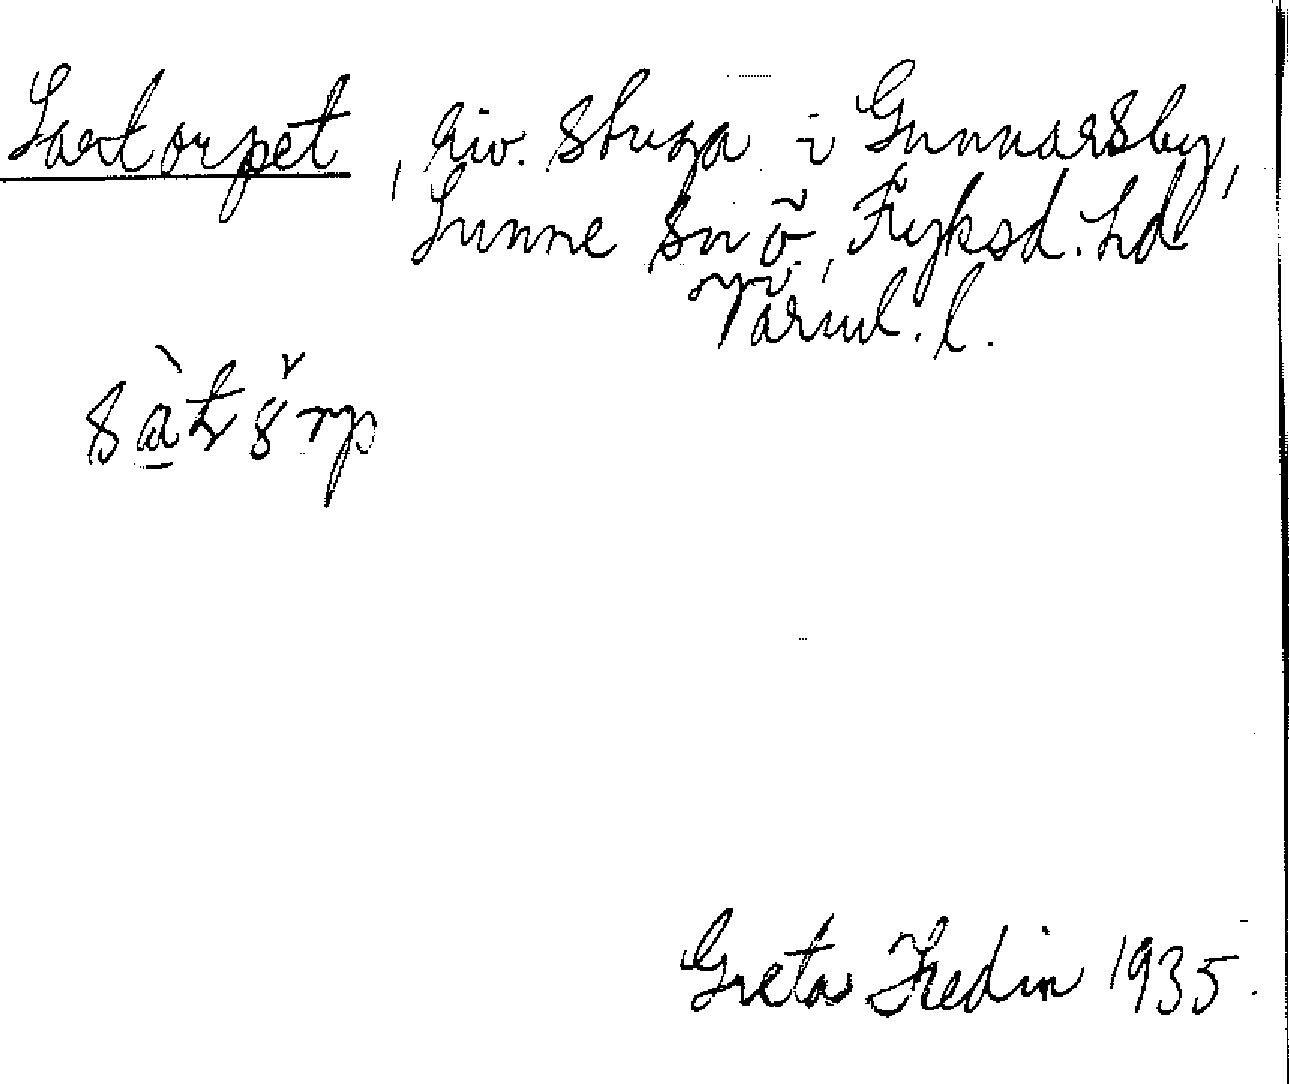 Sartorpet, riv. stuga i Gunnarsby,
Sunne sn Fryksd. hd
Värml. l.
Greta Hedin 1935.